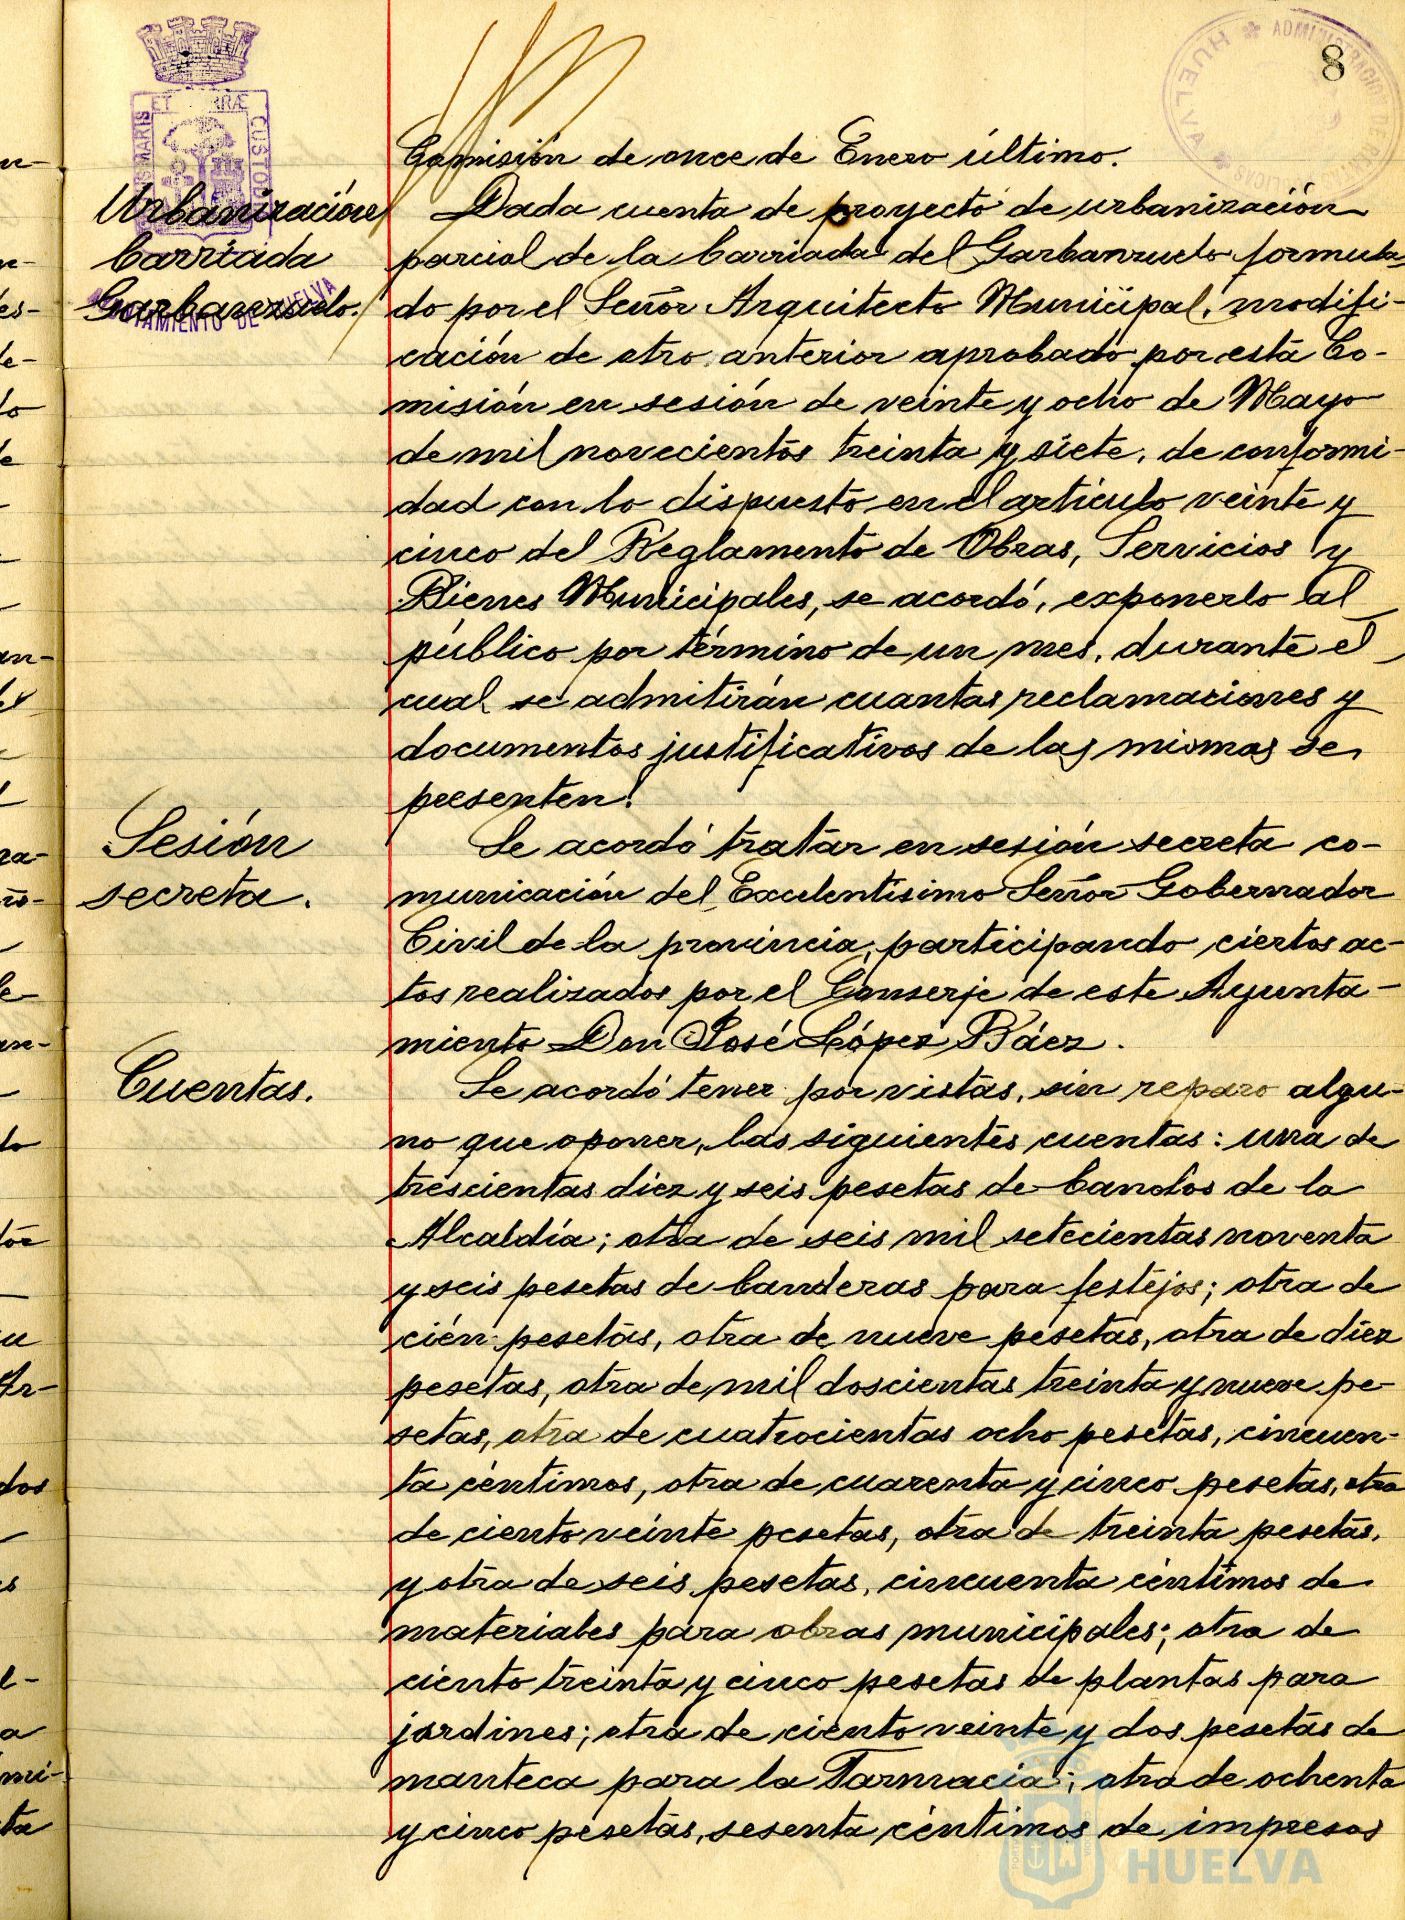 8
Comisión de once de Enero último.
Urbanización
barriada
Garbanzuelo.
Dada cuenta de proyecto de urbanización
parcial de la barriada del Garbanzuelo formula-
do por el Señor Arquitecto Municipal, modifi-
cación de otro anterior aprobado por esta Co-
misión en sesión de veinte y ocho de Mayo
de mil novecientos treinta y siete, de conformi-
dad con lo dispuesto en el artículo veinte y
cinco del Reglamento de Obras, Servicios y
Bienes Municipales, se acordó, exponerlo al
público por término de un mes, durante el
cual se admitirán cuantas reclamaciones y
documentos justificativos de las mismas se
presenten.
Sesión
secreta.
Se acordó tratar en sesión secreta co-
municación del Excelentísimo Señor Gobernador
Civil de la provincia, participando ciertos ac-
tos realizados por el Conserje de este Ayunta-
miento Don José López Báez.
Cuentas.
Se acordó tener por vistas, sin reparo algu-
no que oponer, las siguientes cuentas: una de
trescientas diez y seis pesetas de bandos de la
Alcaldía; otra de seis mil setecientas noventa
y seis pesetas de banderas para festejos; otra de
cién pesetas, otra de nueve pesetas, otra de diez
pesetas, otra de mil doscientas treinta y nueve pe-
setas, otra de cuatrocientas ocho pesetas, cincuen-
ta céntimos, otra de cuarenta y cinco pesetas, otra
de ciento veinte pesetas, otra de treinta pesetas,
y otra de seis pesetas, cincuenta céntimos de
materiales para obras municipales; otra de
ciento treinta y cinco pesetas de plantas para
jardines; otra de ciento veinte y dos pesetas de
manteca para la Farmacia; otra de ochenta
y cinco pesetas, sesenta céntimos de impresos
HUELVA